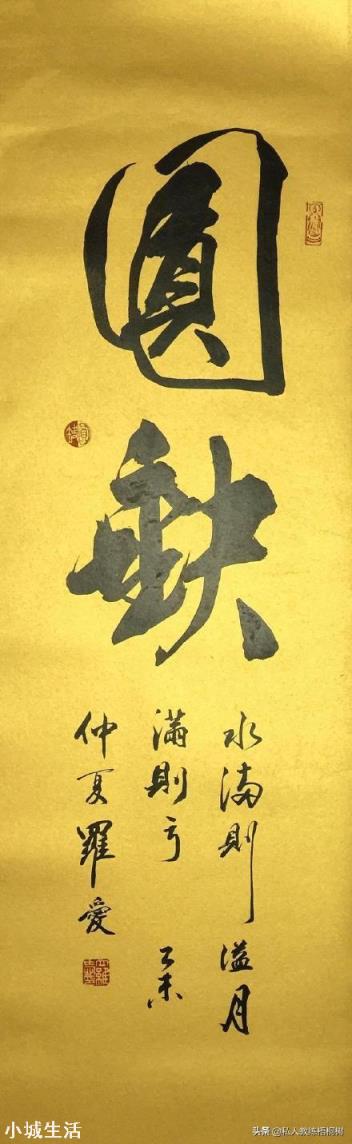 圓缺
水滿則溢月
滿則亏 乙未
仲夏羅愛
小城生活
头条 @私人教练梧桐树